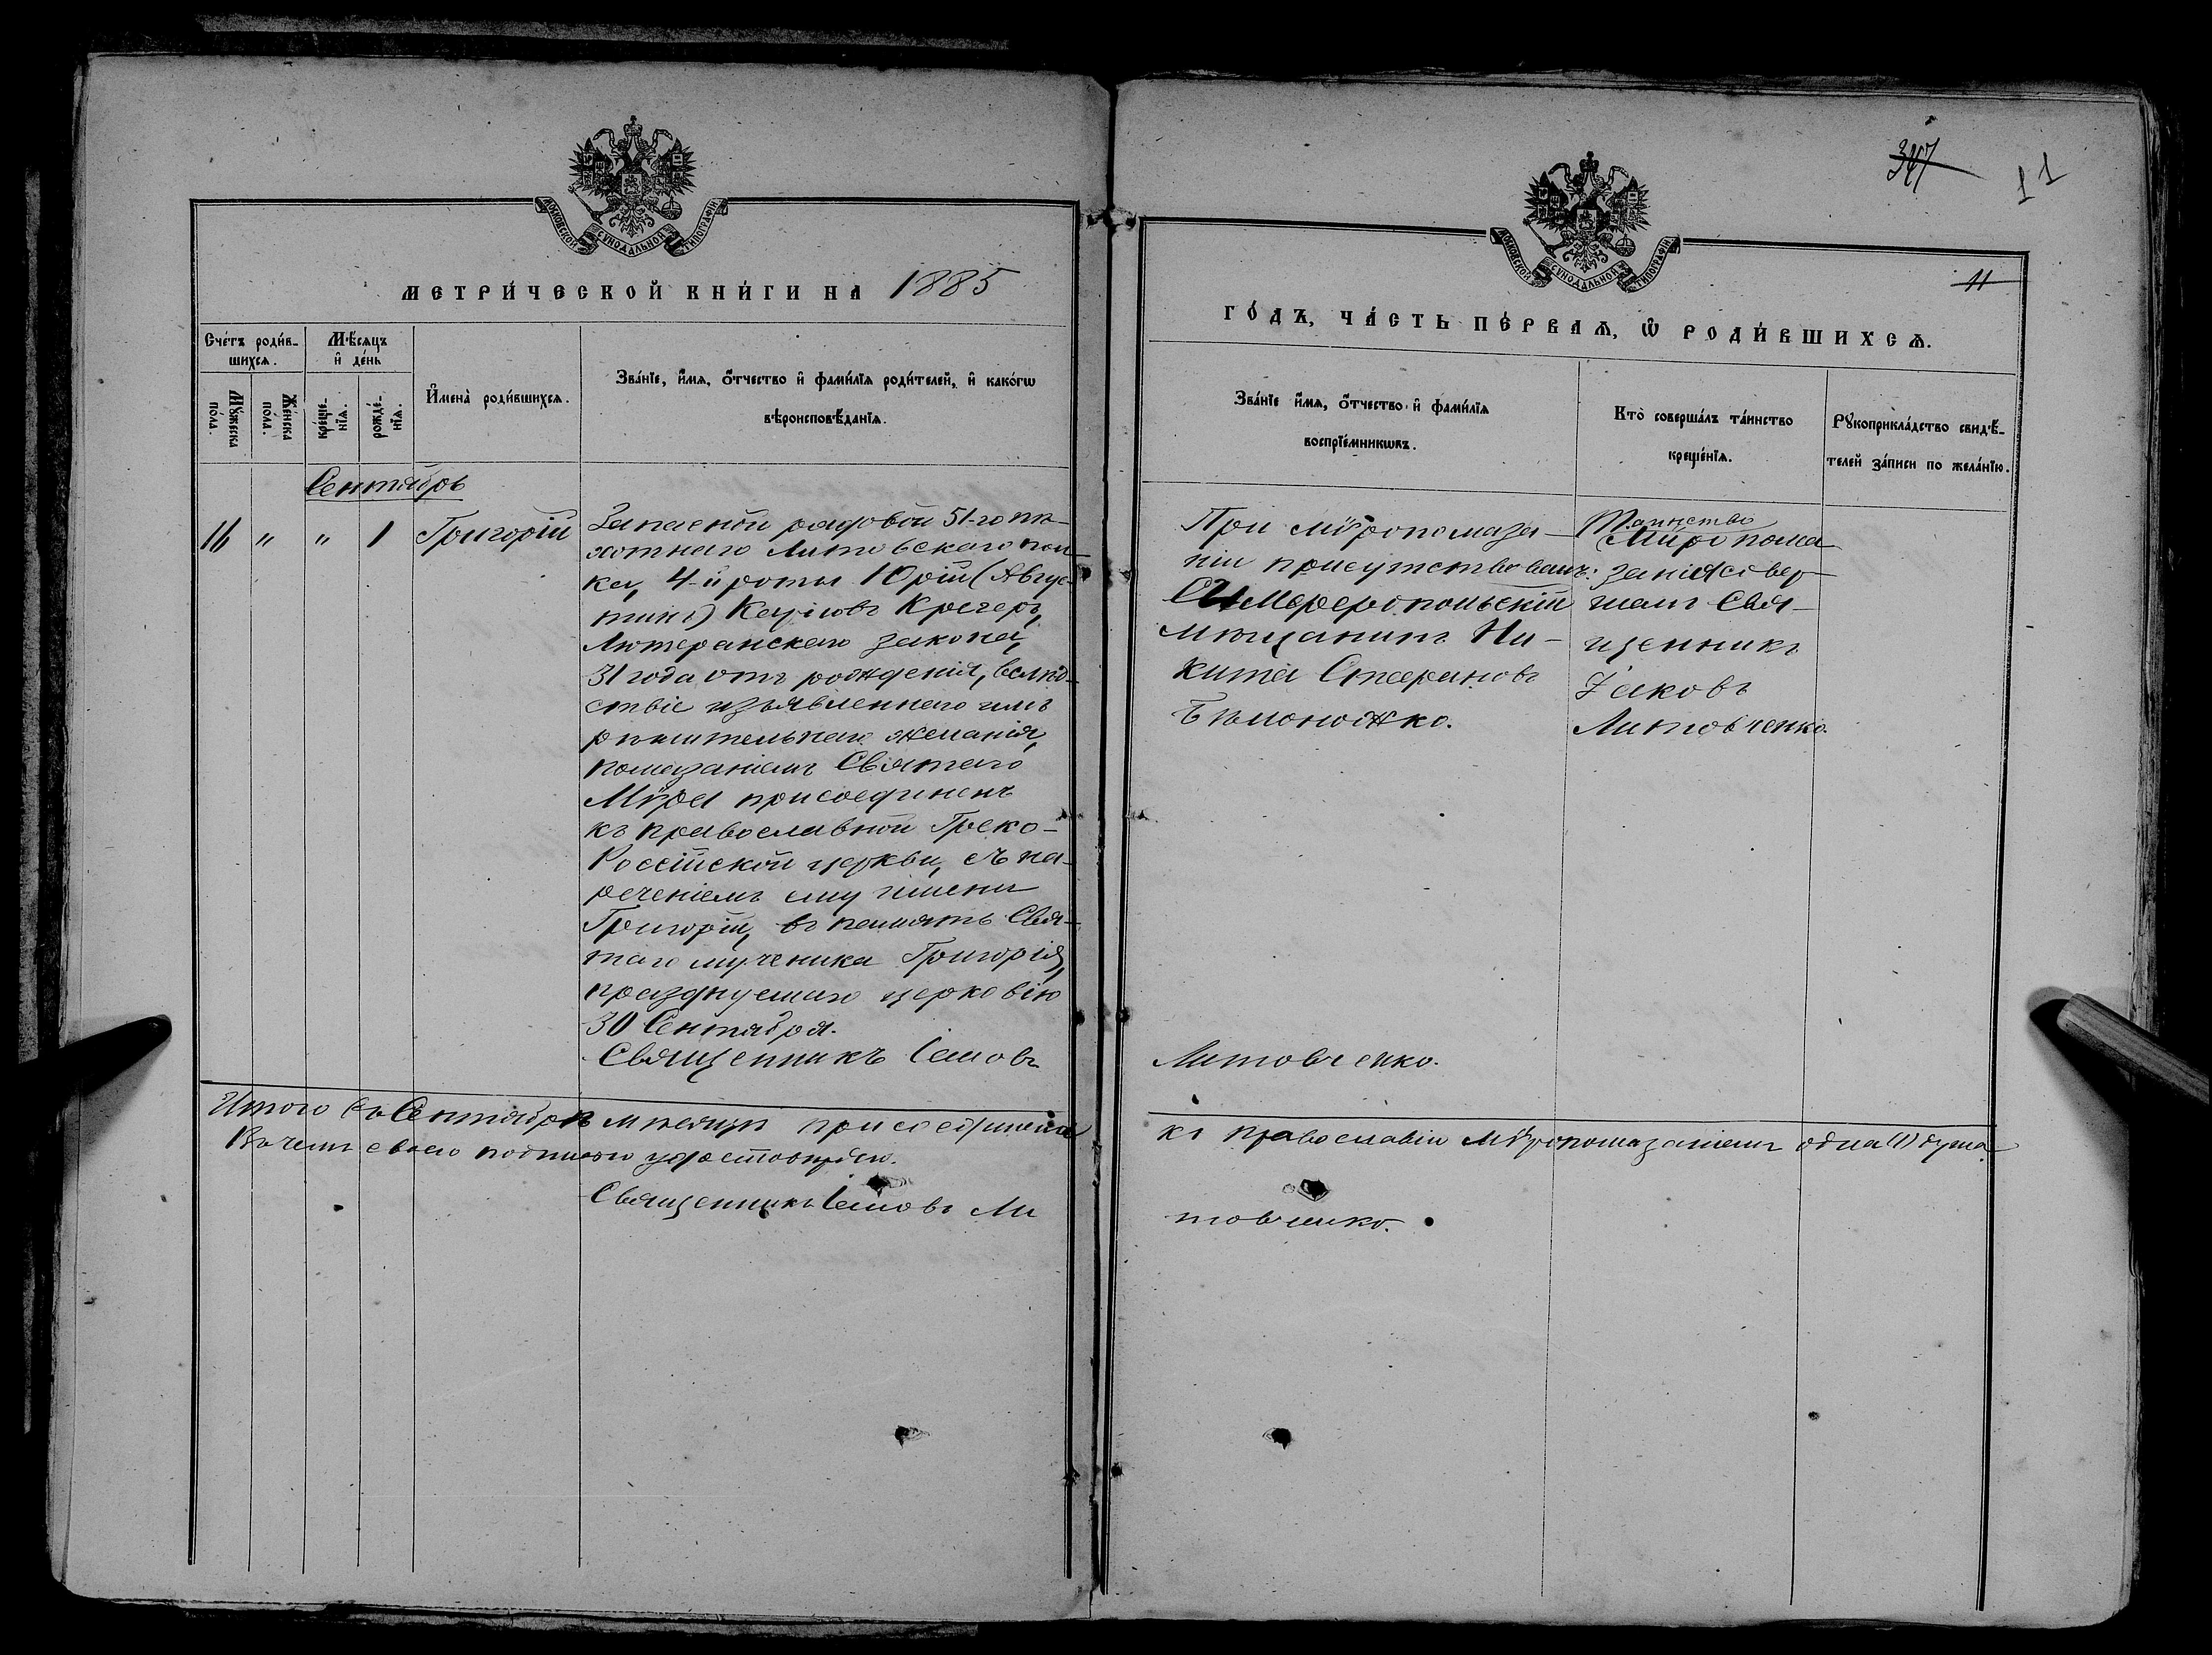 347
11
МОСКОВСКОЙ СУНОДАЛЬНОЙ ТИПОГРАФІИ
МОСКОВСКОЙ СУНОДАЛЬНОЙ ТИПОГРАФІИ
11
МЕТРИ́ЧЕСКОЙ КНИ́ГИ НА 1885
ГО́ДЪ, ЧА́СТЬ ПЕ́РВАѦ, Ѡ҆ РОДИ́ВШИХСѦ.
Сче́тъ роди́в-
шихсѧ.
Мѣ́сѧцъ
и҆ де́нь
Мꙋ́жеска
по́ла.
Же́нска
по́ла.
кре́ще-
нїѧ.
рожде́-
нїѧ.
И҆мена̀ роди́вшихсѧ.
Зва́нїе, и҆́мѧ, ѻ҆́тчество и҆ фами́лїѧ роди́телей, и҆ како́гѡ
вѣроисповѣ́данїѧ.
Зва́нїе и҆́мѧ, ѻ҆́тчество и҆ фами́лїѧ
воспрїе́мникѡвъ.
Кто̀ соверша́лъ та́инство
креще́нїѧ.
Рꙋкоприкла́дство свидѣ́-
телей за́писи по жела́нїю.
Сентябрь
16 " " 1 Григорій
Запасной рядовой 51-го пѣ-
хотнаго Литовскаго пол-
ка, 4-й роты Юрій (Авгус-
тинъ) Карловъ Крегеръ,
Лютеранскаго закона,
31 года отъ рожденія, вслѣд-
ствіе изъявленнаго имъ
рѣшительнаго желанія,
помазаніемъ Святаго
Мѵра присоединенъ
къ православной Греко-
Россійской церкви, съ на-
реченіемъ ему имени
Григорій, въ память Свя-
таго мученика Григорія,
празднуемаго церковію
30 Сентября.
Священникъ Іаковъ
Литовченко.
При мѵропомаза-
ніи присутствовалъ:
Симферопольскій
мѣщанинъ Ни-
кита Стефановъ
Бѣлоножко.
Таинство
Мѵропома
занія совер-
шалъ Свя-
щенникъ
Іаковъ
Литовченко.
Итого въ Сентябрѣ мѣсяцѣ присоединена
къ православію мѵропомазаніемъ одна (1) душа.
Въ чемъ своею подписью удостовѣряю.
Священникъ Іаковъ Ли
товченко.